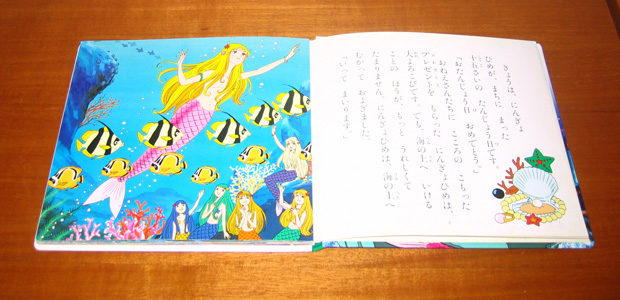 きょうは、にんぎょ
ひめが、まちに まった
十五さいの たんじょう日です。
「おたんじょう日 おめでとう。」
おねえさんたちに こころの こもった
プレゼントを もらった にんぎょひめは、
大よろこびです。でも、海の上へ いける
ことの ほうが、もっと うれしくて
たまりません。にんぎょひめは、海の上へ
むかって およぎました。
「いって まいります。」